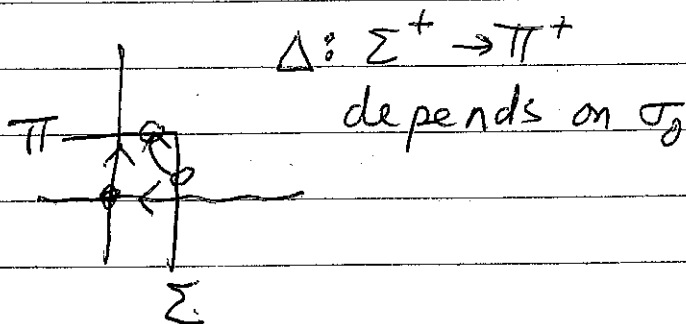 Δ: Σ⁺ → Π⁺
depends on σ₀
Π
Σ